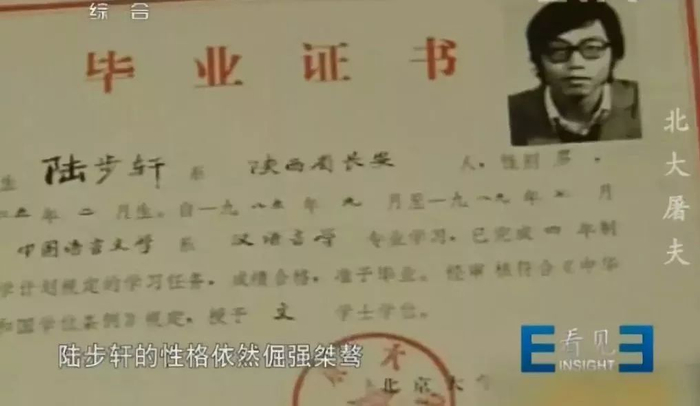 综合
毕业证书
北大屠夫
生 陆步轩 系 陕西省长安 人，性别 男，
五年二月生。自一九八五年九月至一九八九年七月
中国语言文学系 汉语言学 专业学习，已完成四年制
学计划规定的学习任务，成绩合格，准予毕业。经审核符合《中华
和国学位条例》规定，授予 文 学士学位。
陆步轩的性格依然倔强桀骜
看见
INSIGHT
北京大